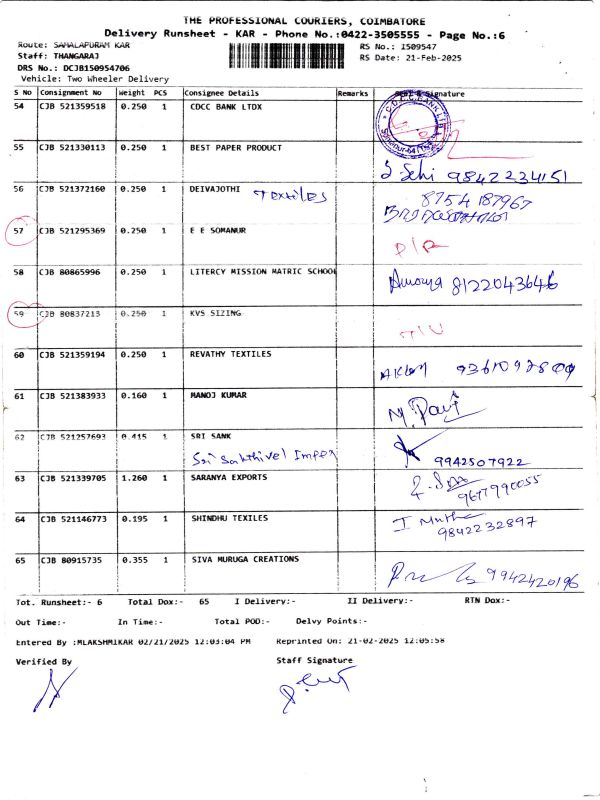 THE PROFESSIONAL COURIERS, COIMBATORE
Delivery Runsheet - KAR - Phone No.:0422-3505555 - Page No.:6
Route: SAMALAPURAM KAR
RS No.: I509547
Staff: THANGARAJ
RS Date: 21-Feb-2025
DRS No.: DCJB150954706
Vehicle: Two Wheeler Delivery
S No Consignment No Weight PCS Consignee Details Remarks & Signature
54 CJB 521359518 0.250 1 CDCC BANK LTDX
55 CJB 521330113 0.250 1 BEST PAPER PRODUCT 9842234151
56 CJB 521372160 0.250 1 DEIVAJOTHI Textiles 8754187967
57 CJB 521295369 0.250 1 E E SOMANUR
58 CJB 80865996 0.250 1 LITERCY MISSION MATRIC SCHOOL 8122043646
59 CJB 80837213 0.250 1 KVS SIZING
60 CJB 521359194 0.250 1 REVATHY TEXTILES
61 CJB 521383933 0.160 1 MANOJ KUMAR
62 CJB 521257693 0.415 1 SRI SANK
Sri Sakthivel Impex 9942507922
63 CJB 521339705 1.260 1 SARANYA EXPORTS
9677990055
64 CJB 521146773 0.195 1 SHINDHU TEXILES
9842232897
65 CJB 80915735 0.355 1 SIVA MURUGA CREATIONS 9942420196
Tot. Runsheet:- 6 Total Dox:- 65 I Delivery:- II Delivery:- RTN Dox:-
Out Time:- In Time:- Total POD:- Delvy Points:-
Entered By :MLAKSHMIKAR 02/21/2025 12:03:04 PM Reprinted On: 21-02-2025 12:05:58
Verified By Staff Signature